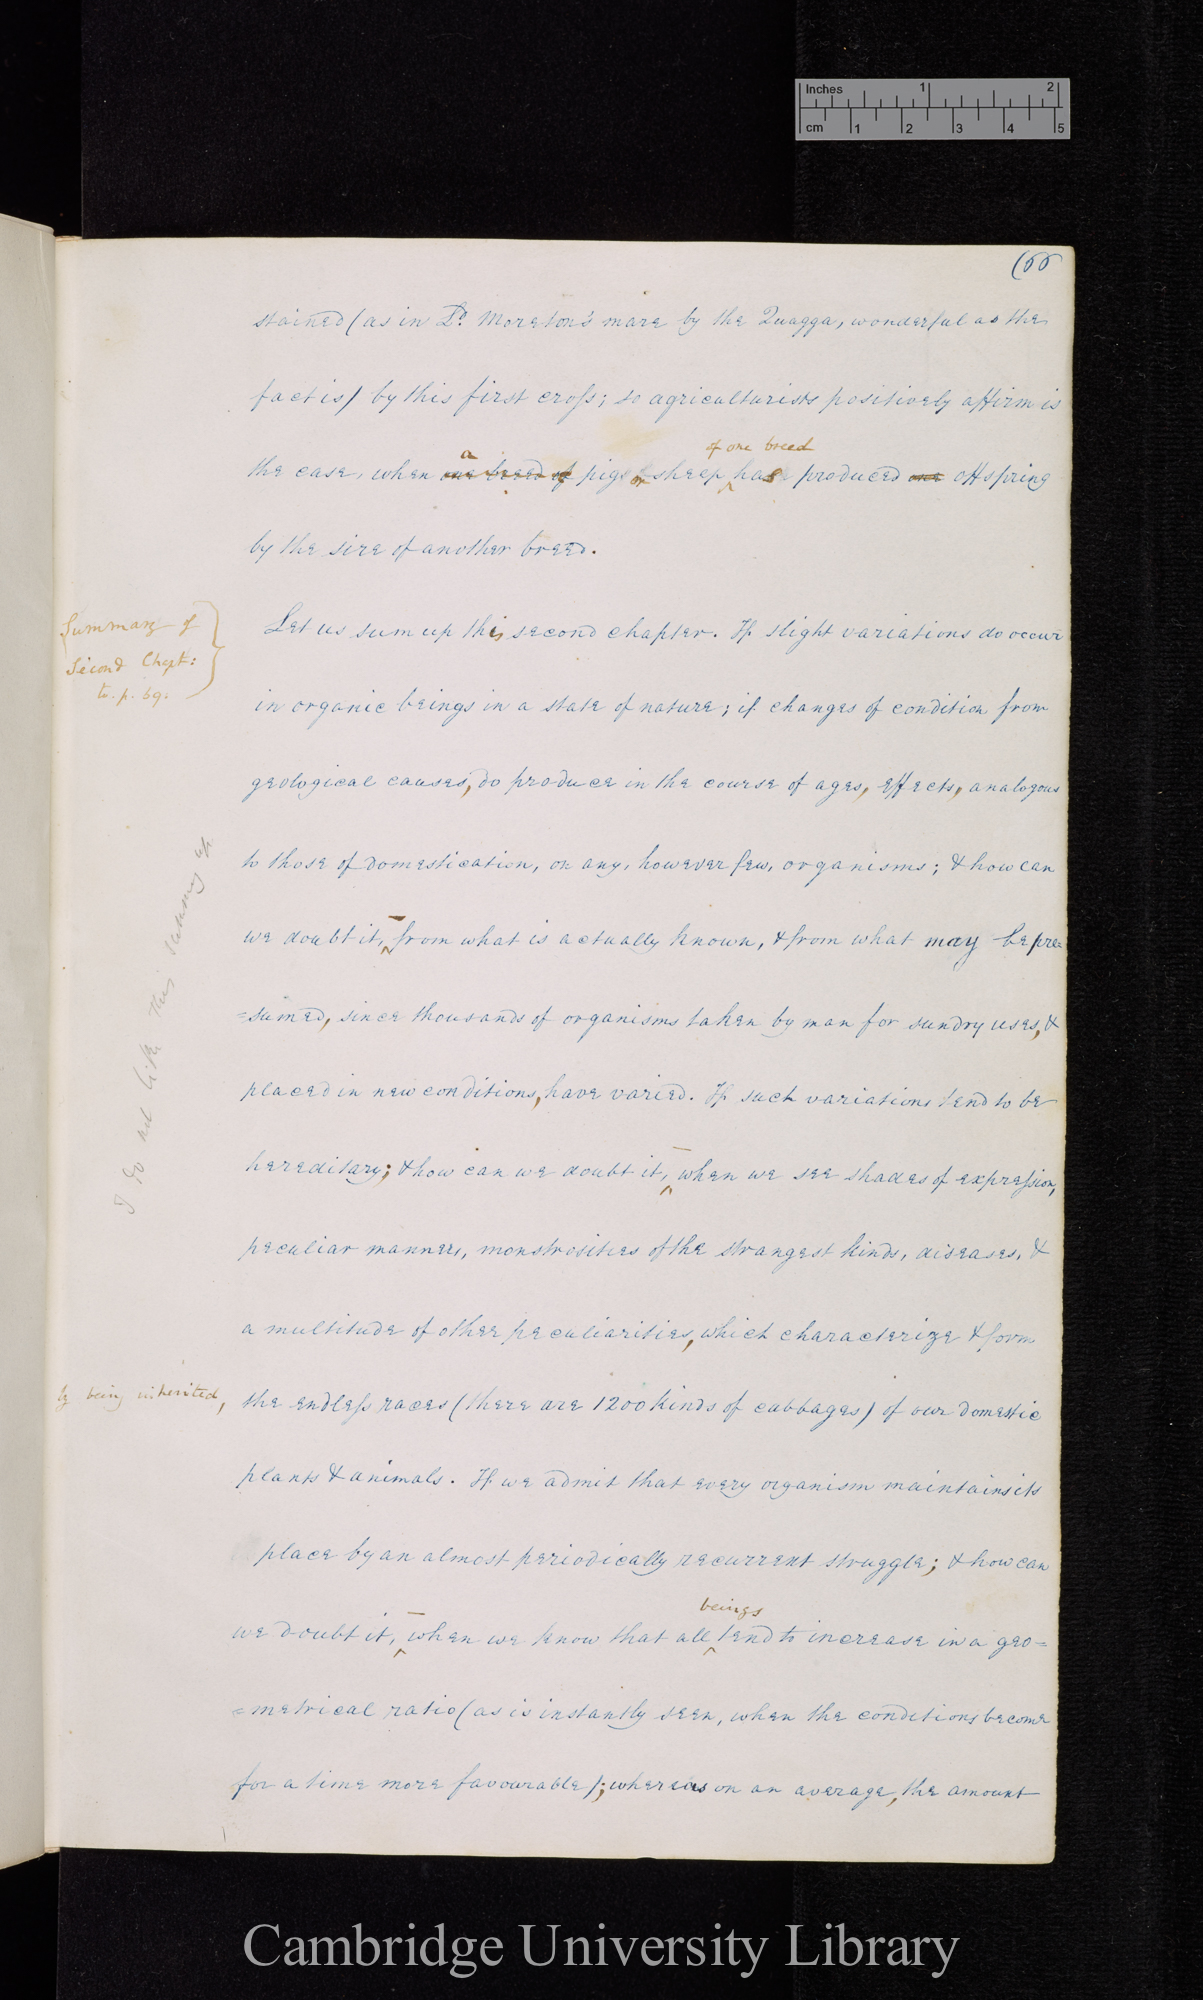 Inches 1 2
cm 1 2 3 4 5
(66
stained (as in Ld. Moreton's mare by the Quagga, wonderful as the
fact is) by this first cross; so agriculturists positively affirm is
a of one breed
the case, when one breed of pigs or sheep has produced one offspring
by the sire of another breed.
Summary of
Second Chapt:
to p. 69.
Let us sum up this second chapter. If slight variations do occur
in organic beings in a state of nature; if changes of condition from
geological causes, do produce in the course of ages, effects, analogous
to those of domestication, on any, however few, organisms; & how can
we doubt it, – from what is actually known, & from what may be pre=
=sumed, since thousands of organisms taken by man for sundry uses, &
placed in new conditions, have varied. If such variations tend to be
hereditary; & how can we doubt it, – when we see shades of expression,
peculiar manners, monstrosities of the strangest kinds, diseases, &
a multitude of other peculiarities, which characterize & form
by being inherited,
the endless races (there are 1200 kinds of cabbages) of our domestic
plants & animals. If we admit that every organism maintains its
place by an almost periodically recurrent struggle; & how can
beings
we doubt it, – when we know that all tend to increase in a geo=
=metrical ratio (as is instantly seen, when the conditions become
for a time more favourable); whereas on an average, the amount
I do not like this summing up
Cambridge University Library